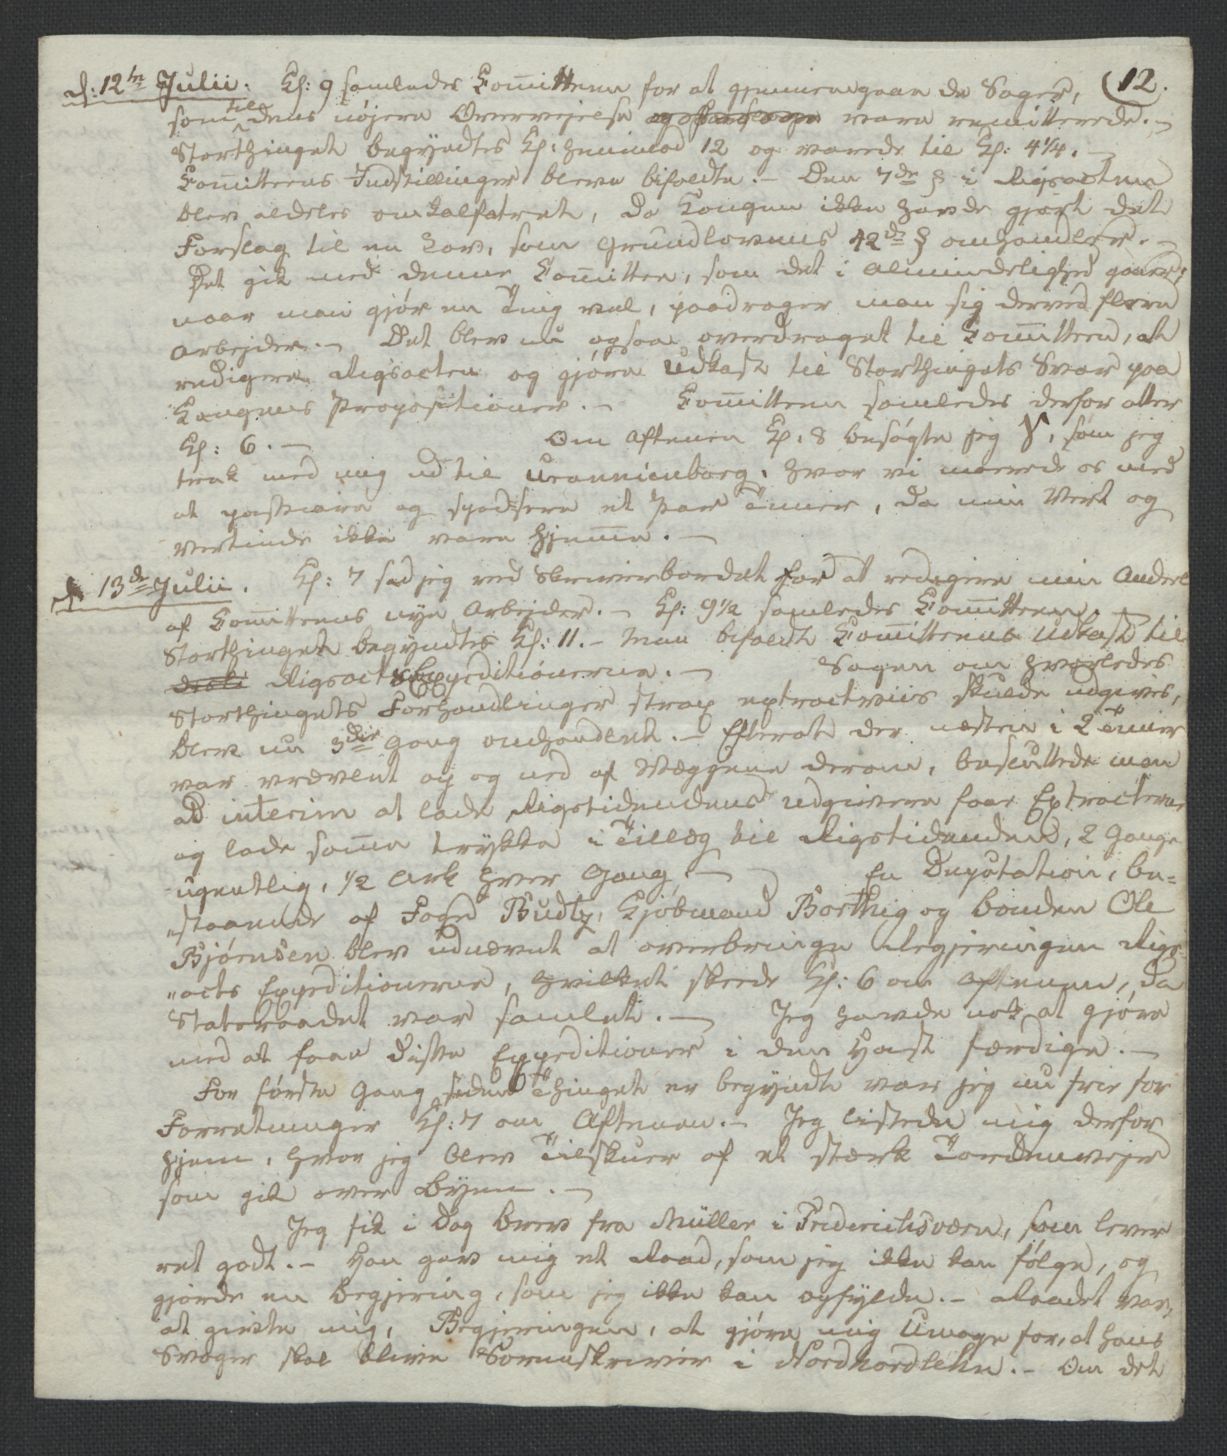 12.
d: 12te Julii. Kl: 9 samledes Committeen for at gjennemgaae de Sager,
som til dens nøjere Overvejelse vare remitterede. -
Storthinget begyndtes Kl: henimod 12 og varede til Kl: 4 1/4. -
Committeens Indstillinger bleve bifaldte. - Den 7de § i Rigsacten
blev aldeles omkalfatret, da Kongen ikke havde gjort det
Forslag til en Lov, som Grundlovens 42de § omhandler. -
Det gik med denne Committee, som det i Almindelighed gaaer;
naar man gjør en Ting vel, paadrager man sig derved flere
Arbejder. - Det blev nu ogsaa overdraget til Committeen, at
redigere Rigsacten og gjøre Udkast til Storthingets Svar paa
Kongens Propositioner. - Committeen samledes derfor atter
Kl: 6. - Om Aftenen Kl: 8 besøgte jeg , som jeg
trak med mig ud til Uranienborg, hvor vi morede os med
at passiare og spadsere et Par Timer, da min Vert og
Vertinde ikke vare hjemme. -
d: 13de Julii. Kl: 7 sad jeg ved Skriverbordet for at redigere min Andeel
af Committeens nye Arbejder. - Kl: 9 1/2 samledes Committeen. -
Storthinget begyndtes Kl: 11. - Man bifaldt Committeens Udkast til
Rigsacts Expeditionerne. - Sagen om hvorledes
Storthingets Forhandlinger strax extractviis skulde udgives,
blev nu 3die Gang omhandlet. - Efterat der næsten i 2 Timer
var vrævlet op og ned af Væggene derom, besluttede man
ad interim at lade Rigstidendens Udgivere faae Extracterne
og lade samme trykke i Tillæg til Rigstidenden, 2 Gange
ugentlig, 1/2 Ark hver Gang. - En Deputation, be=
"staaende af Foged Budtz, Kjøbmand Borthig og Bonden Ole
Bjørnsen blev udnævnt at overbringe Regjeringen Rigs=
"acts Expeditionerne, hvilket skeede Kl: 6 om Aftenen, da
Statsraadet var samlet. - Jeg havde nok at gjøre
med at faae disse Expeditioner i den Hast færdige. -
For første Gang siden Thinget er begyndt var jeg nu frie for
Forretninger Kl: 7 om Aftenen. - Jeg listede mig derfor
hjem, hvor jeg blev Tilskuer af et stærk Tordenvejr
som gik over Byen. -
Jeg fik i Dag Brev fra Müller i Friderichsværn, som lever
ret godt. - Han gav mig et Raad, som jeg ikke kan følge, og
gjorde en Begjering, som jeg ikke kan opfylde. - Raadet var,
at gifte mig, Begjeringen, at gjøre mig Umage for, at hans
Svoger skal blive Sorenskriver i Nordhordlehn. - Om det